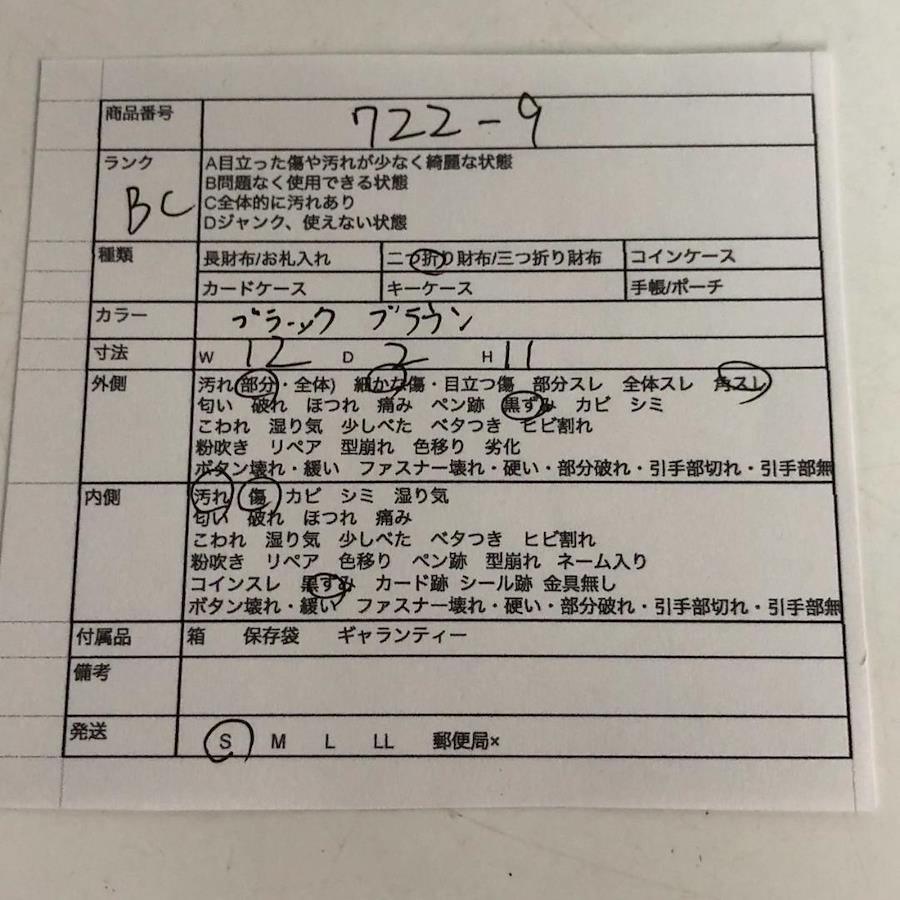 商品番号 722-9
ランク BC
A目立った傷や汚れが少なく綺麗な状態
B問題なく使用できる状態
C全体的に汚れあり
Dジャンク、使えない状態
種類 長財布/お札入れ 二つ折り財布/三つ折り財布 コインケース
カードケース キーケース 手帳/ポーチ
カラー ブラック ブラウン
寸法 W 12 D 2 H 11
外側 汚れ(部分・全体) 細かな傷・目立つ傷 部分スレ 全体スレ 角スレ
匂い 破れ ほつれ 痛み ペン跡 黒ずみ カビ シミ
こわれ 湿り気 少しべた ベタつき ヒビ割れ
粉吹き リペア 型崩れ 色移り 劣化
ボタン壊れ・緩い ファスナー壊れ・硬い・部分破れ・引手部切れ・引手部無
内側 汚れ 傷 カビ シミ 湿り気
匂い 破れ ほつれ 痛み
こわれ 湿り気 少しべた ベタつき ヒビ割れ
粉吹き リペア 色移り ペン跡 型崩れ ネーム入り
コインスレ 黒ずみ カード跡 シール跡 金具無し
ボタン壊れ・緩い ファスナー壊れ・硬い・部分破れ・引手部切れ・引手部無
付属品 箱 保存袋 ギャランティー
備考
発送 S M L LL 郵便局×